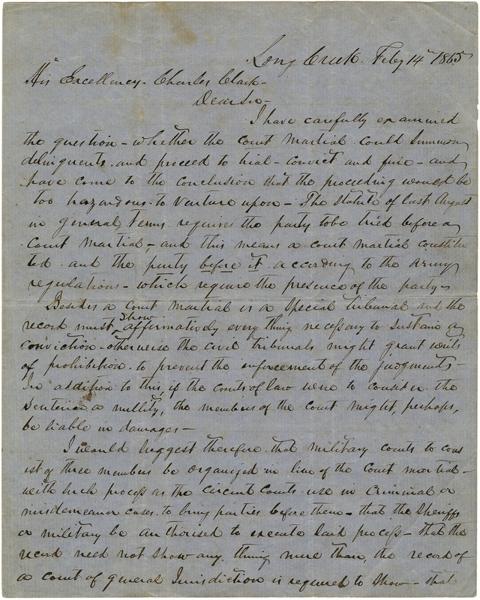 Long Creek Feby 14th 1865
His Excellency Charles Clark -
Dear Sir -
I have carefully examined
the question - whether the court Martial could Summon
delinquents and proceed to trial - convict and fine - and
have come to the conclusion that the proceeding would be
too hazardous to venture upon - The statute of last August
in general terms requires the party to be tried before a
Court Martial - and this means a court martial constitu
ted and the party before it according to the army
regulations - which require the presence of the party -
Besides a Court Martial is a special tribunal and the
record must show affirmatively every thing necessary to sustain a
conviction - otherwise the civil tribunals might grant writs
of prohibition to prevent the enforcement of the judgments -
In addition to this, if the courts of law were to consider the
sentence a nullity, the members of the court might perhaps,
be liable in damages -
I would suggest therefore that military courts to cons
ist of three members be organized in lieu of the Court martial -
with such process as the circuit courts use in criminal or
misdemeanor cases to bring parties before them - that the sheriffs
or military be authorised to execute said process - that the
record need not show any thing more than the record of
a court of general Jurisdiction is required to show - that